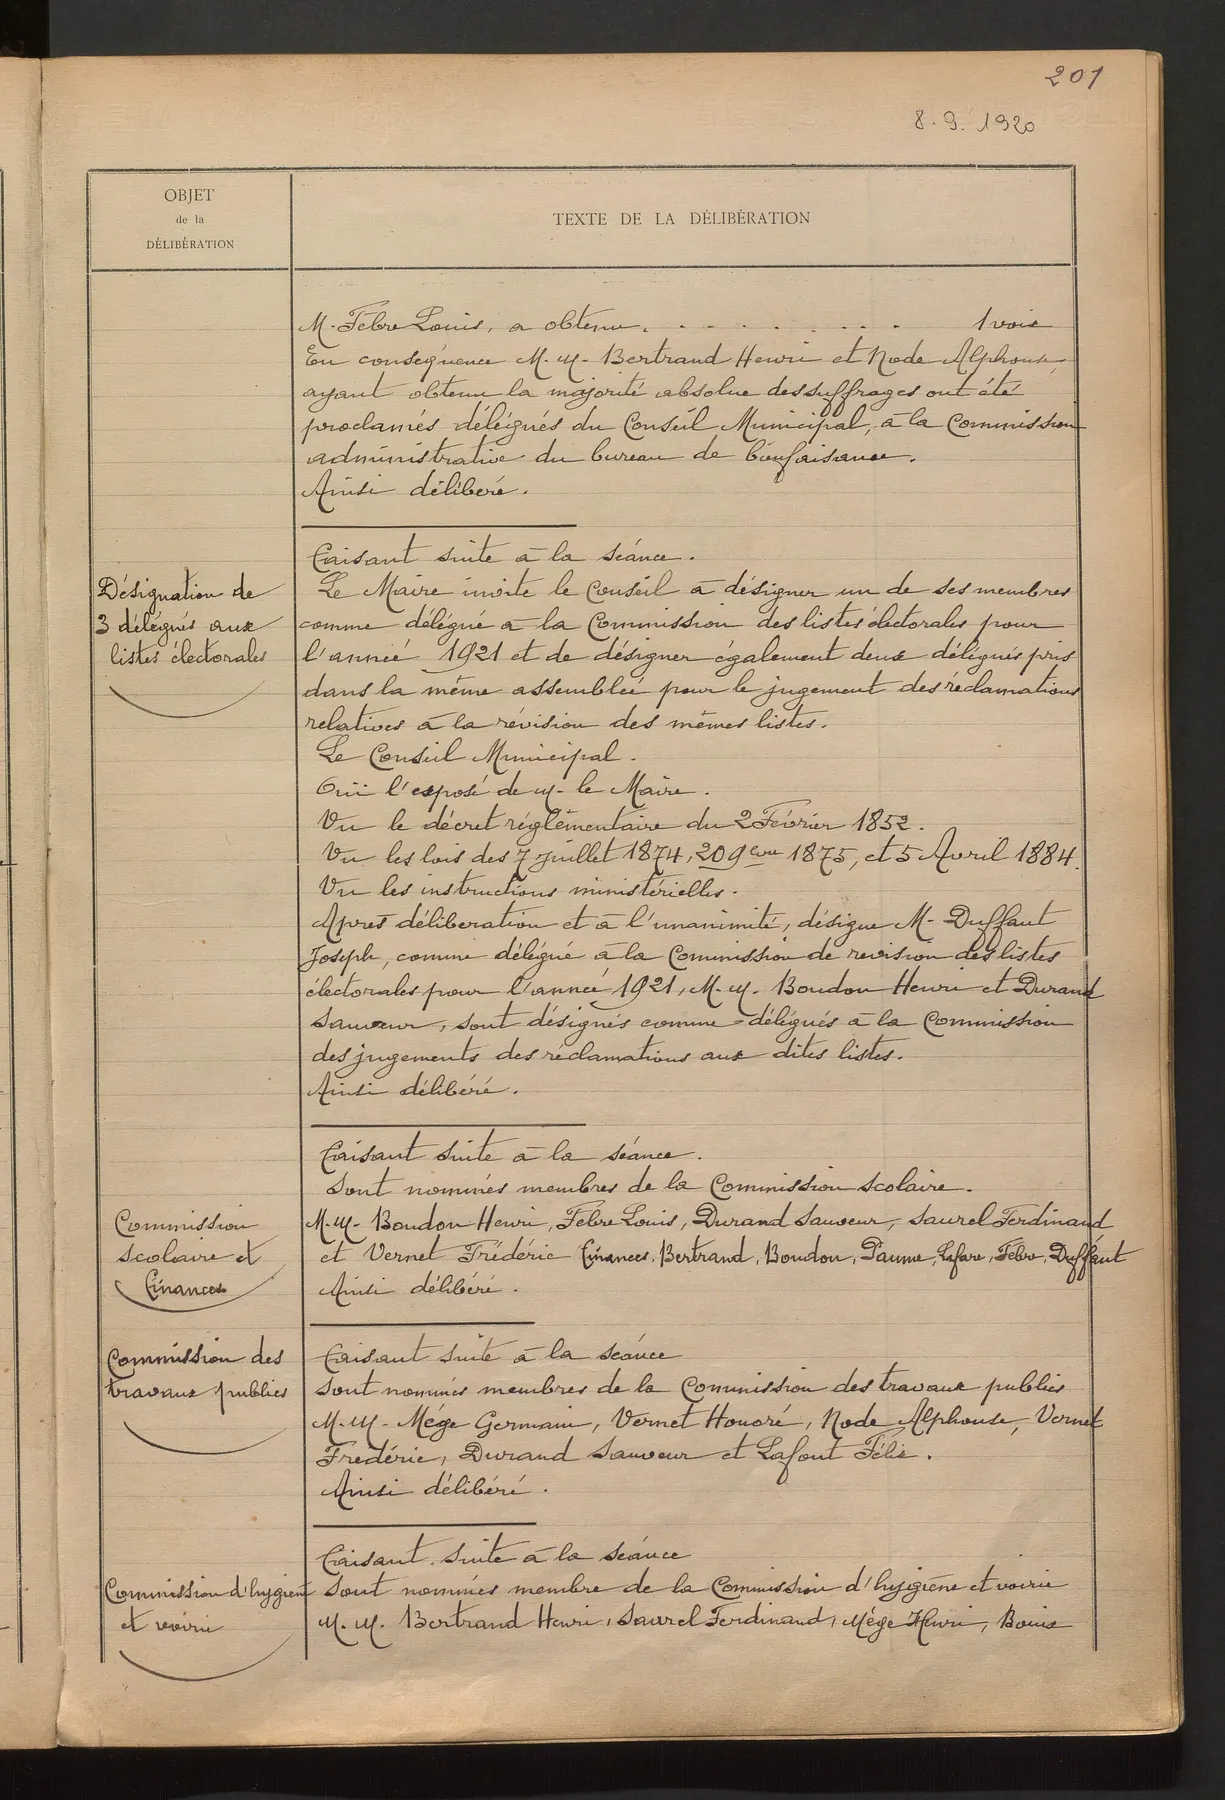 201
8.9.1920
OBJET
de la
DÉLIBÉRATION
TEXTE DE LA DÉLIBÉRATION
M. Febre Louis, a obtenu . . . . . . . . . 1 voix
En conséquence M. M. Bertrand Henri et Node Alphonse,
ayant obtenu la majorité absolue des suffrages ont été
proclamés délégués du Conseil Municipal, à la Commission
administrative du bureau de bienfaisance.
Ainsi délibéré.
Faisant suite à la séance.
Désignation de
3 délégués aux
listes électorales
Le Maire invite le Conseil à désigner un de ses membres
comme délégué à la Commission des listes électorales pour
l'année 1921 et de désigner également deux délégués pris
dans la même assemblée pour le jugement des réclamations
relatives à la révision des mêmes listes.
Le Conseil Municipal.
Ouï l'exposé de M. le Maire.
Vu le décret réglementaire du 2 Février 1852.
Vu les lois des 7 Juillet 1874, 20 9bre 1875, et 5 Avril 1884.
Vu les instructions ministérielles.
Après déliberation et à l'unanimité, désigne M. Duffaut
Joseph, comme délégué à la Commission de revision des listes
électorales pour l'année 1921, M. M. Boudon Henri et Durand
Sauveur, sont désignés comme délégués à la Commission
des jugements des réclamations aux dites listes.
Ainsi délibéré.
Faisant suite à la séance.
Sont nommés membres de la Commission scolaire.
Commission
scolaire et
Finances
M. M. Boudon Henri, Febre Louis, Durand Sauveur, Saurel Ferdinand
et Vernet Frédéric Finances, Bertrand, Boudon, Paume, Lafare, Febre, Duffaut
Ainsi délibéré.
Commission des
travaux publics
Faisant suite à la séance
Sont nommés membres de la Commission des travaux publics
M. M. Mége Germain, Vernet Honoré, Node Alphonse, Vernet
Frédéric, Durand Sauveur et Lafont Félix.
Ainsi délibéré.
Faisant suite à la séance
Commission d'hygiène
et voirie
Sont nommés membre de la Commission d'hygiène et voirie
M. M. Bertrand Henri, Saurel Ferdinand, Mège Henri, Bouix